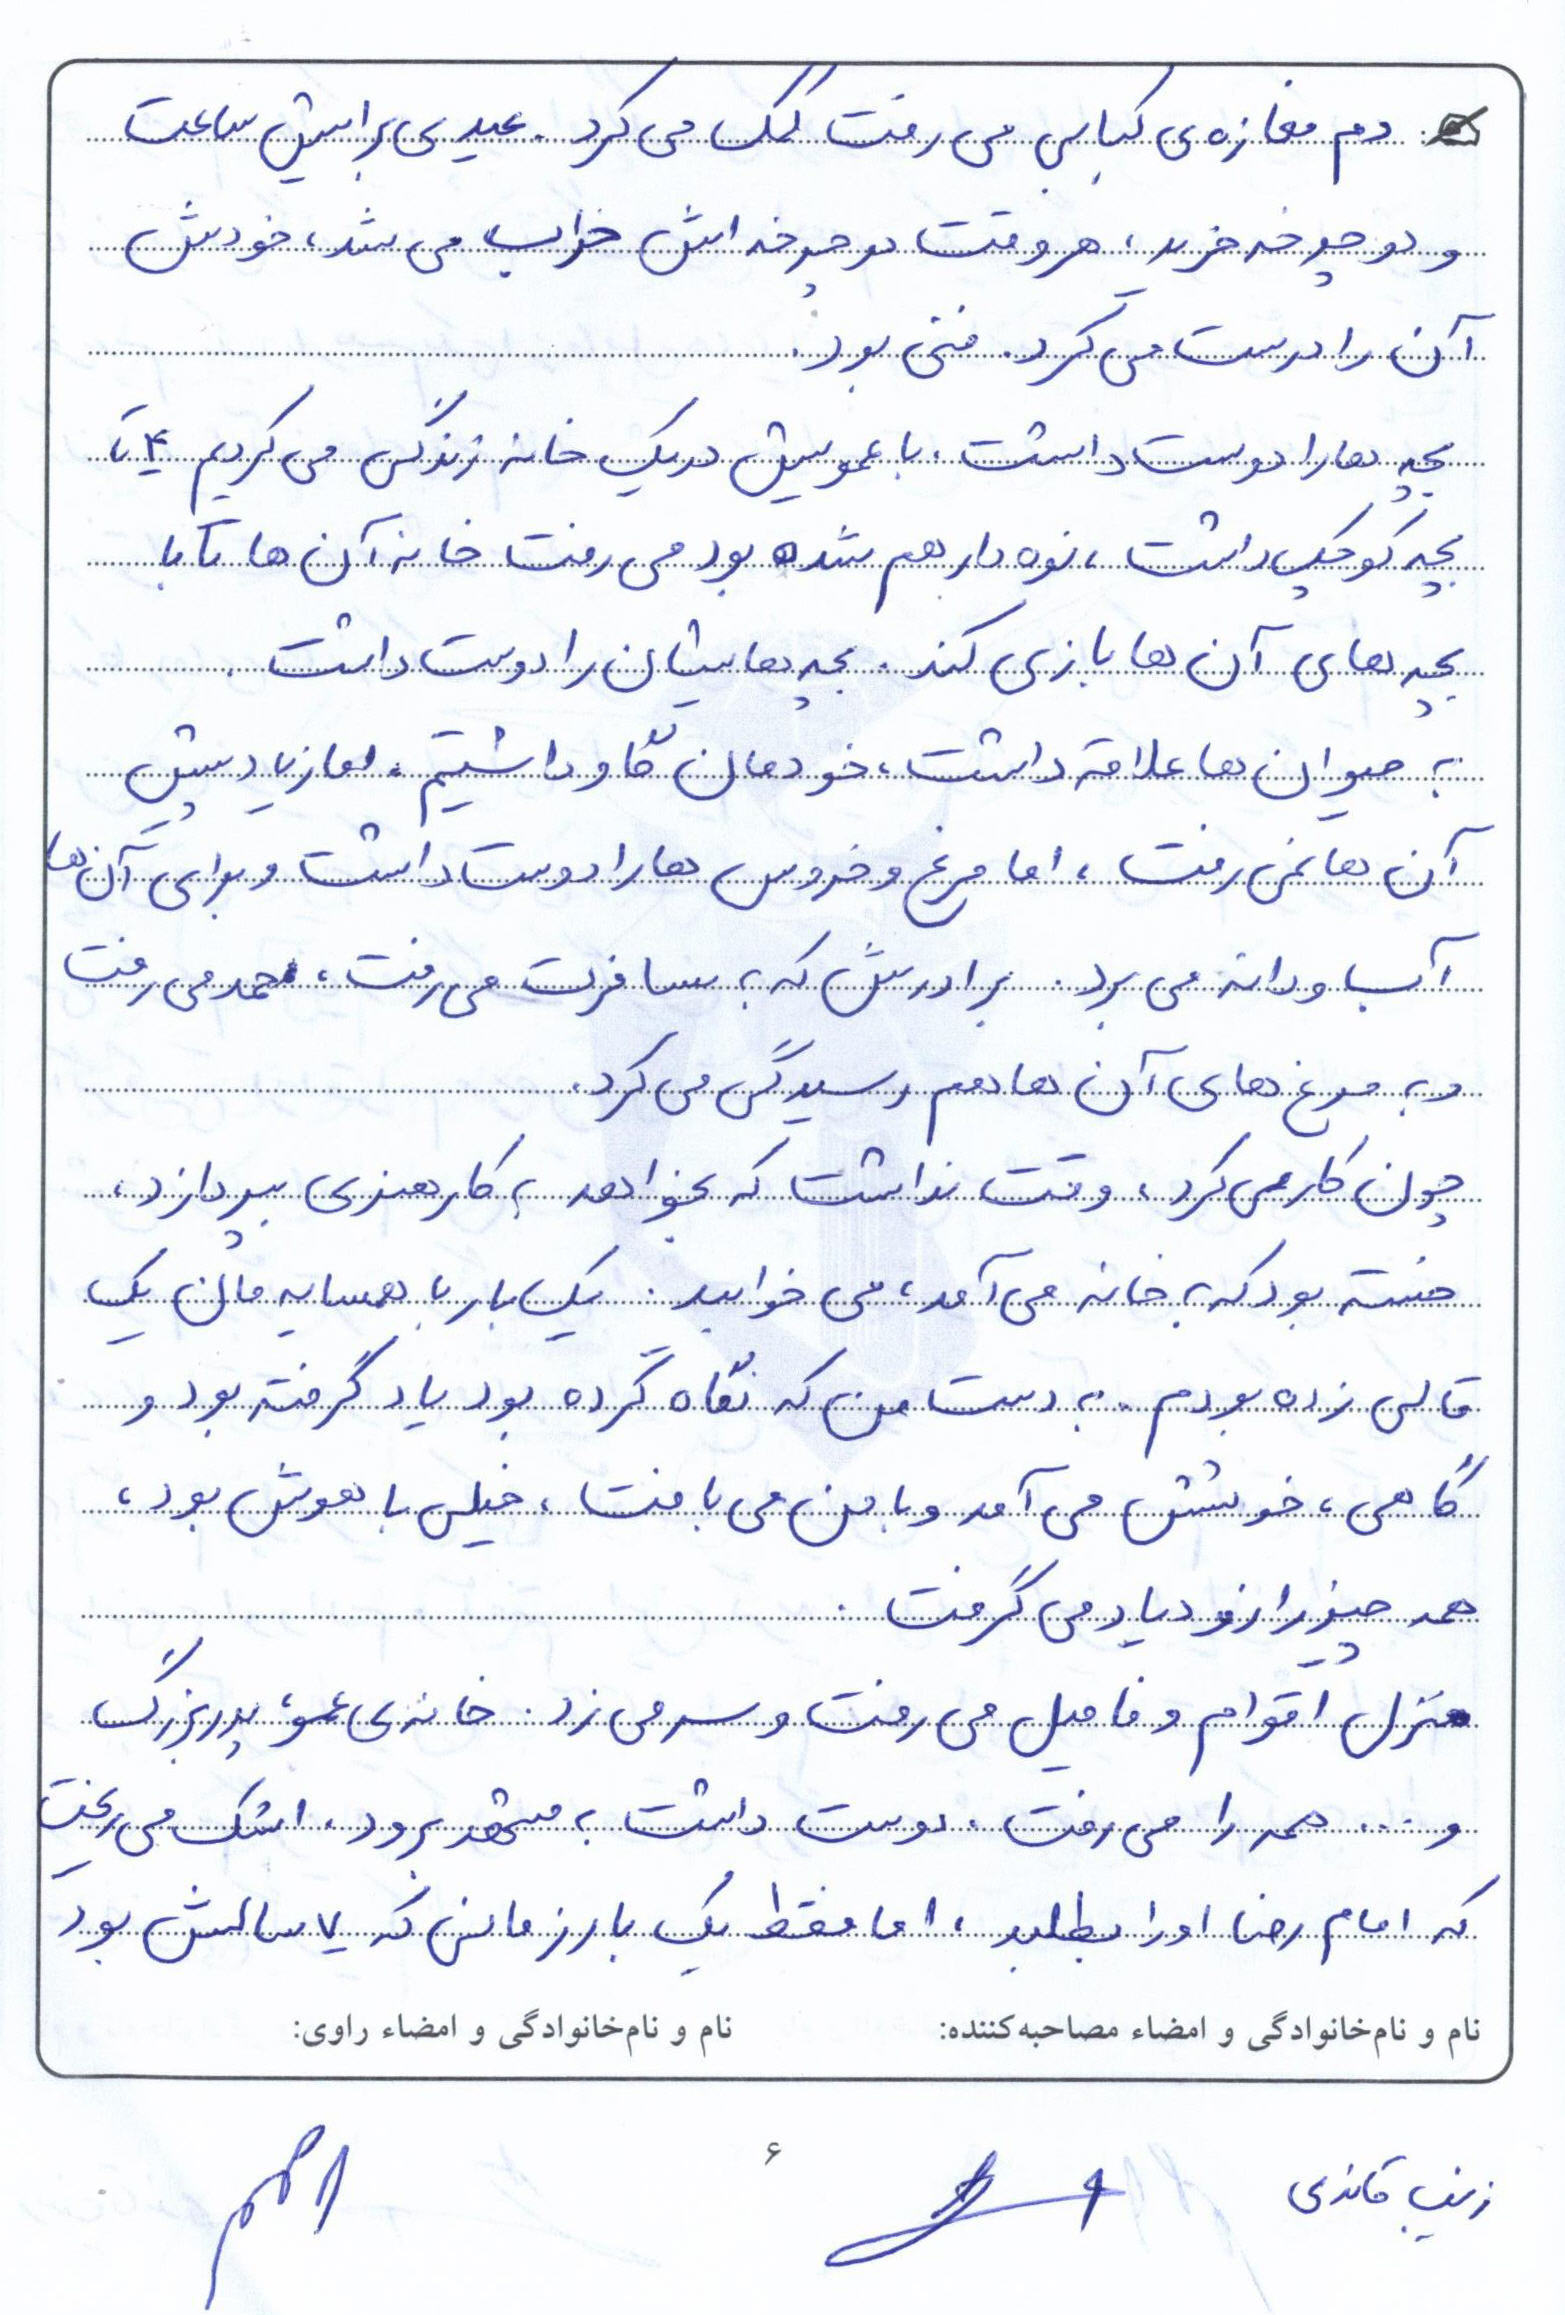 دم مغازه‌ی کبابی می رفت کمک می کرد. عیدی براش ساعت
و دوچرخه خرید، هر وقت دوچرخه اش خراب می شد، خودش
آن را درست می کرد. فنی بود.
بچه ها را دوست داشت. با عمویش در یک خانه زندگی می کردیم ۴ تا
بچه کوچک داشت، نوه دار هم شده بود می رفت خانه آن ها تا با
بچه های آن ها بازی کند. بچه هایشان را دوست داشت.
به حیوان ها علاقه داشت، خودمان گاو داشتیم. اما زیاد پیش
آن ها نمی رفت، اما مرغ و خروس ها را دوست داشت و برای آن ها
آب و دانه می برد. برادرش که به مسافرت می رفت، محمد می رفت
و به مرغ های آن ها هم رسیدگی می کرد.
چون کار می کرد، وقت نداشت که بخواهد به کار هنری بپردازد،
خسته بود که به خانه می آمد، می خوابید. یک بار با همسایه مان یک
قالی زده بودم. به دست من که نگاه کرده بود یاد گرفته بود و
گاهی، خوشش می آمد و با من می بافت، خیلی باهوش بود،
همه چیز را زود یاد می گرفت.
منزل اقوام و فامیل می رفت و سر می زد. خانه ی عمو، پدربزرگ
و ... همه را می رفت. دوست داشت به مشهد برود. اشک می ریخت
که امام رضا او را بطلبد، اما فقط یک بار زمانی که ۷ سالش بود
نام و نام‌خانوادگی و امضاء مصاحبه‌کننده: نام و نام‌خانوادگی و امضاء راوی:
زینب قائدی
۶